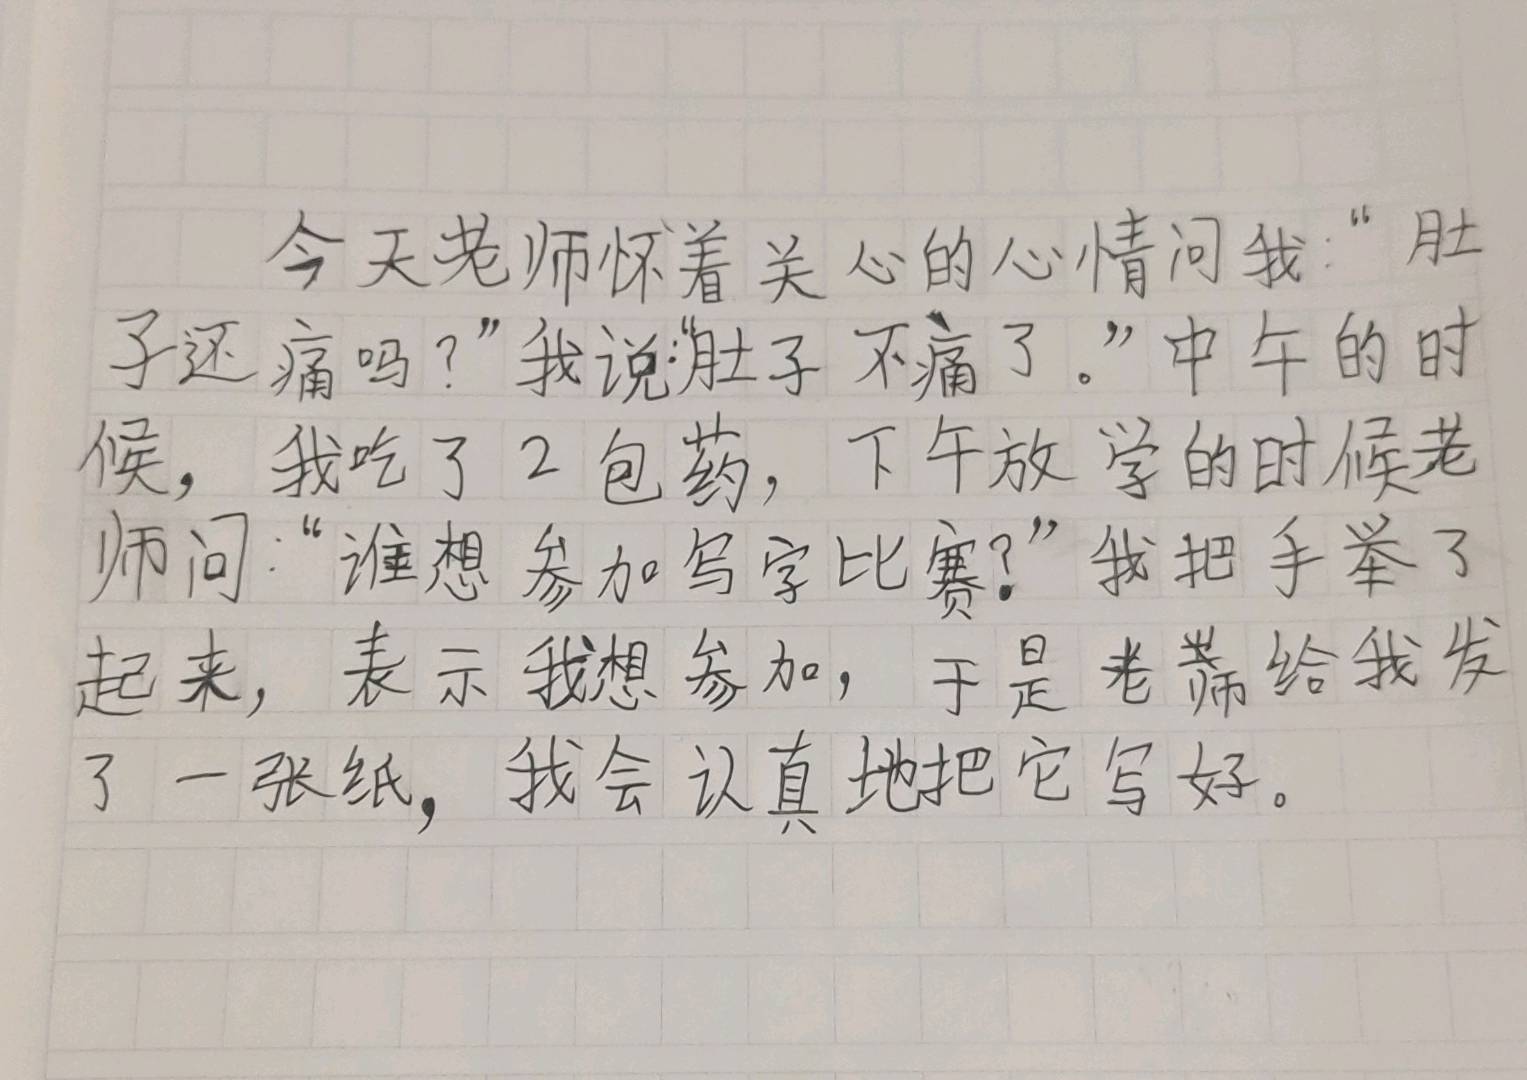 今天老师怀着关心的心情问我：“肚
子还痛吗？”我说：“肚子不痛了。”中午的时
候，我吃了2包药，下午放学的时候老
师问：“谁想参加写字比赛？”我把手举了
起来，表示我想参加，于是老师给我发
了一张纸，我会认真地把它写好。